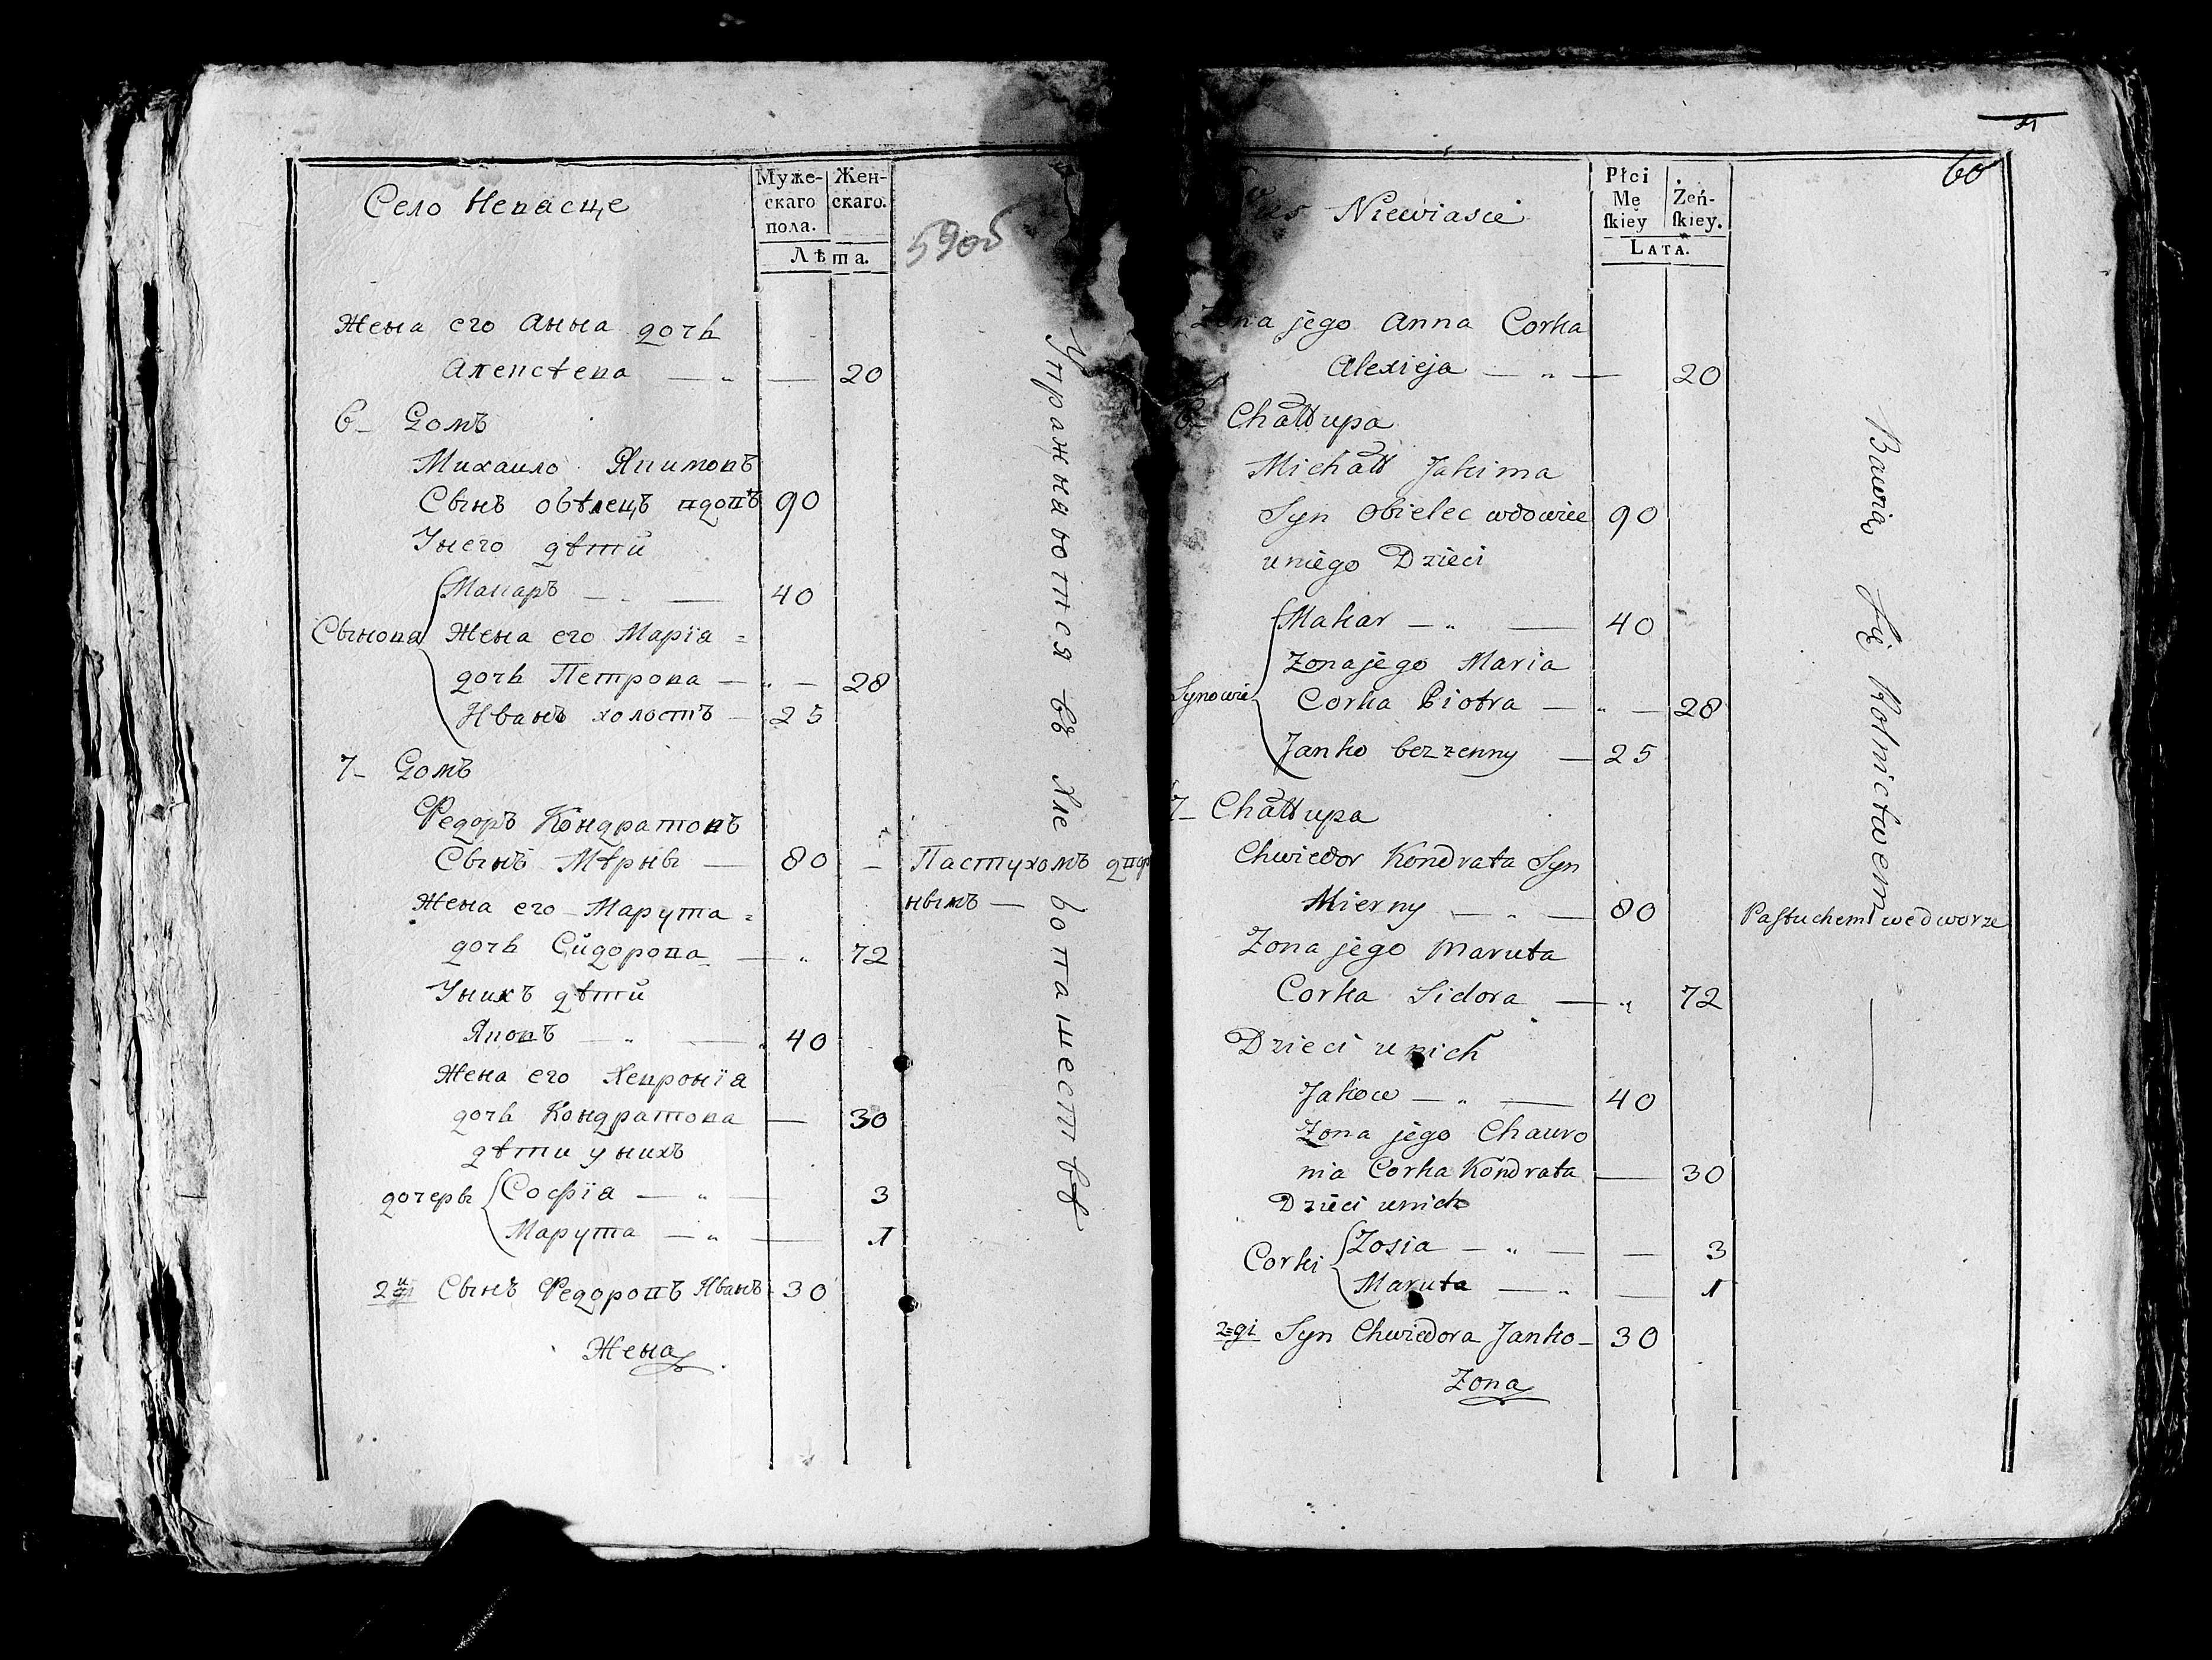 Село Невясце
Муже-
скаго
пола.
Жен-
скаго.
Лѣта.
59об
Жена его Анна дочь
Алексѣева — „ — 20
6- Домъ
Михаило Якимовъ
Сынъ обѣлецъ вдовъ 90
Унего дѣти
Макаръ — — 40
Сынова Жена его Марїа =
дочь Петрова — „ — 28
Иванъ холостъ — 25
7- Домъ
Федоръ Кондратовъ
Сынъ Мѣрны — 80 — Пастухомъ двор
Жена его Марута = нымъ —
дочь Сидорова — „ 72
Унихъ дѣти
Яковъ — „ — 40
Жена его
дочь Кондратова — 30
дѣти унихъ
дочеры Софїа — „ — 3
Марута — „ — 1
2й Сынъ Федоровъ Иванъ 30
Жена
Упражнаются въ Хлебопашествѣ
60
Niewiascie
Płci
Mę
skiey
Żeń-
skiey.
LATA.
Zona jego Anna Corka
Alexieja — „ — 20
6- Chałłupa
Michałł Jakima
Syn Obielec wdowiec 90
uniego Dzieci
Makar — „ — 40
Zona jego Maria
Synowie Corka Piotra — „ — 28
Janko bezzenny — 25
7- Chałłupa
Chwiedor Kondrata Syn
Mierny — „ — 80 Pastuchem we dworze
Zona jego Maruta
Corka Sidora — „ 72
Dzieci unich
Jakow — „ — 40
Zona jego Chawro
nia Corka Kondrata — 30
Dzieci unich
Corki Zosia — „ — — 3
Maruta — „ — 1
2=gi Syn Chwiedora Janko — 30
Zona
Bawią się Rolnictwem